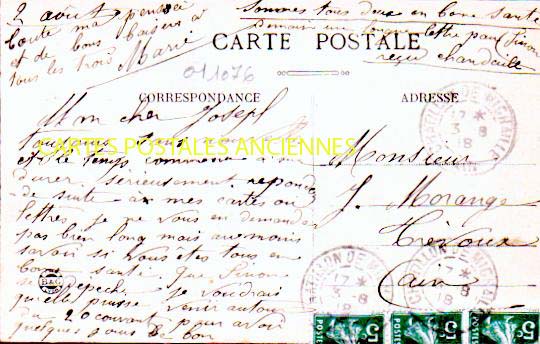 2 août pensée
toute ma
et de bons baisers à
tous les trois Marie
Sommes tous deux en bonne santé
demain une longue lettre pour Simon
reçu chandaille
CARTE POSTALE
011076
CORRESPONDANCE
ADRESSE
CARTES POSTALES ANCIENNES
Mon cher Joseph
toujours
et le temps commence à me
durer sérieusement reponds
de suite a mes cartes ou
lettres je ne vous en demandes
pas bien long mais au moins
savoir si vous etes tous en
bonne santé que Simon
se depeche je voudrais
qu'elle puisse venir autour
du 20 courant pour avoir
quelques jours de bon
B&G
Monsieur
J. Morange
Trévoux
Ain
17 *
3 - 8
18
17 *
3 - 8
18
17 *
3 - 8
18
5c
5c
5c
POSTES
POSTES
POSTES